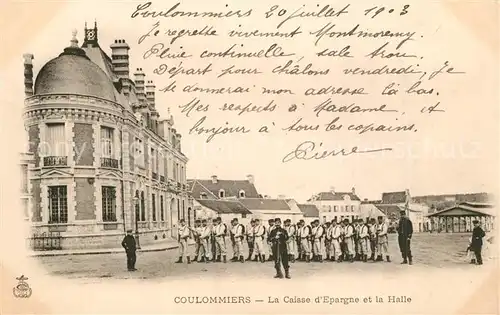 Coulommiers 20 Juillet 1903
Je regrette vivement Montmorency.
Pluie continuelle, sale trou.
Départ pour Châlons vendredi, Je
te donnerai mon adresse là bas.
Mes respects à Madame, et
bonjour à tous les copains.
Pierre
COULOMMIERS – La Caisse d'Epargne et la Halle